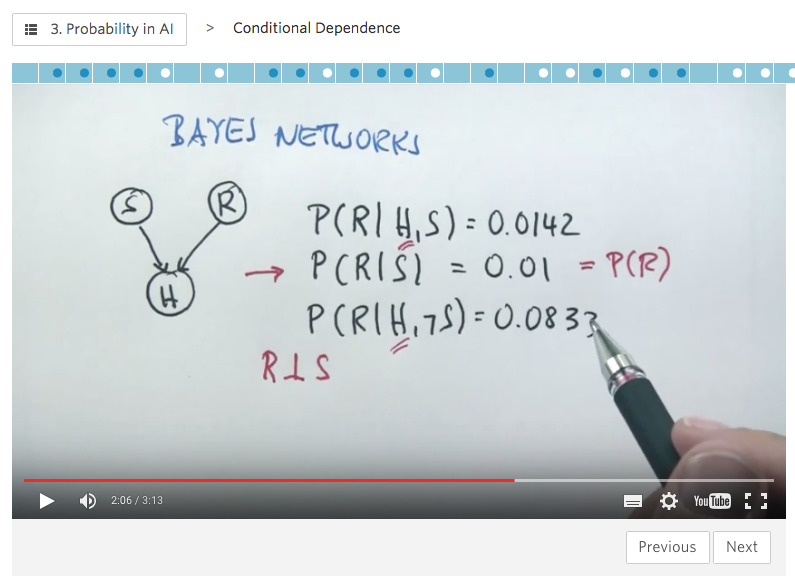 3. Probability in AI > Conditional Dependence
BAYES NETWORKS
S R
H
P(R|H,S) = 0.0142
→ P(R|S) = 0.01 = P(R)
P(R|H,¬S) = 0.0833
R⊥S
2:06 / 3:13
YouTube
Previous Next